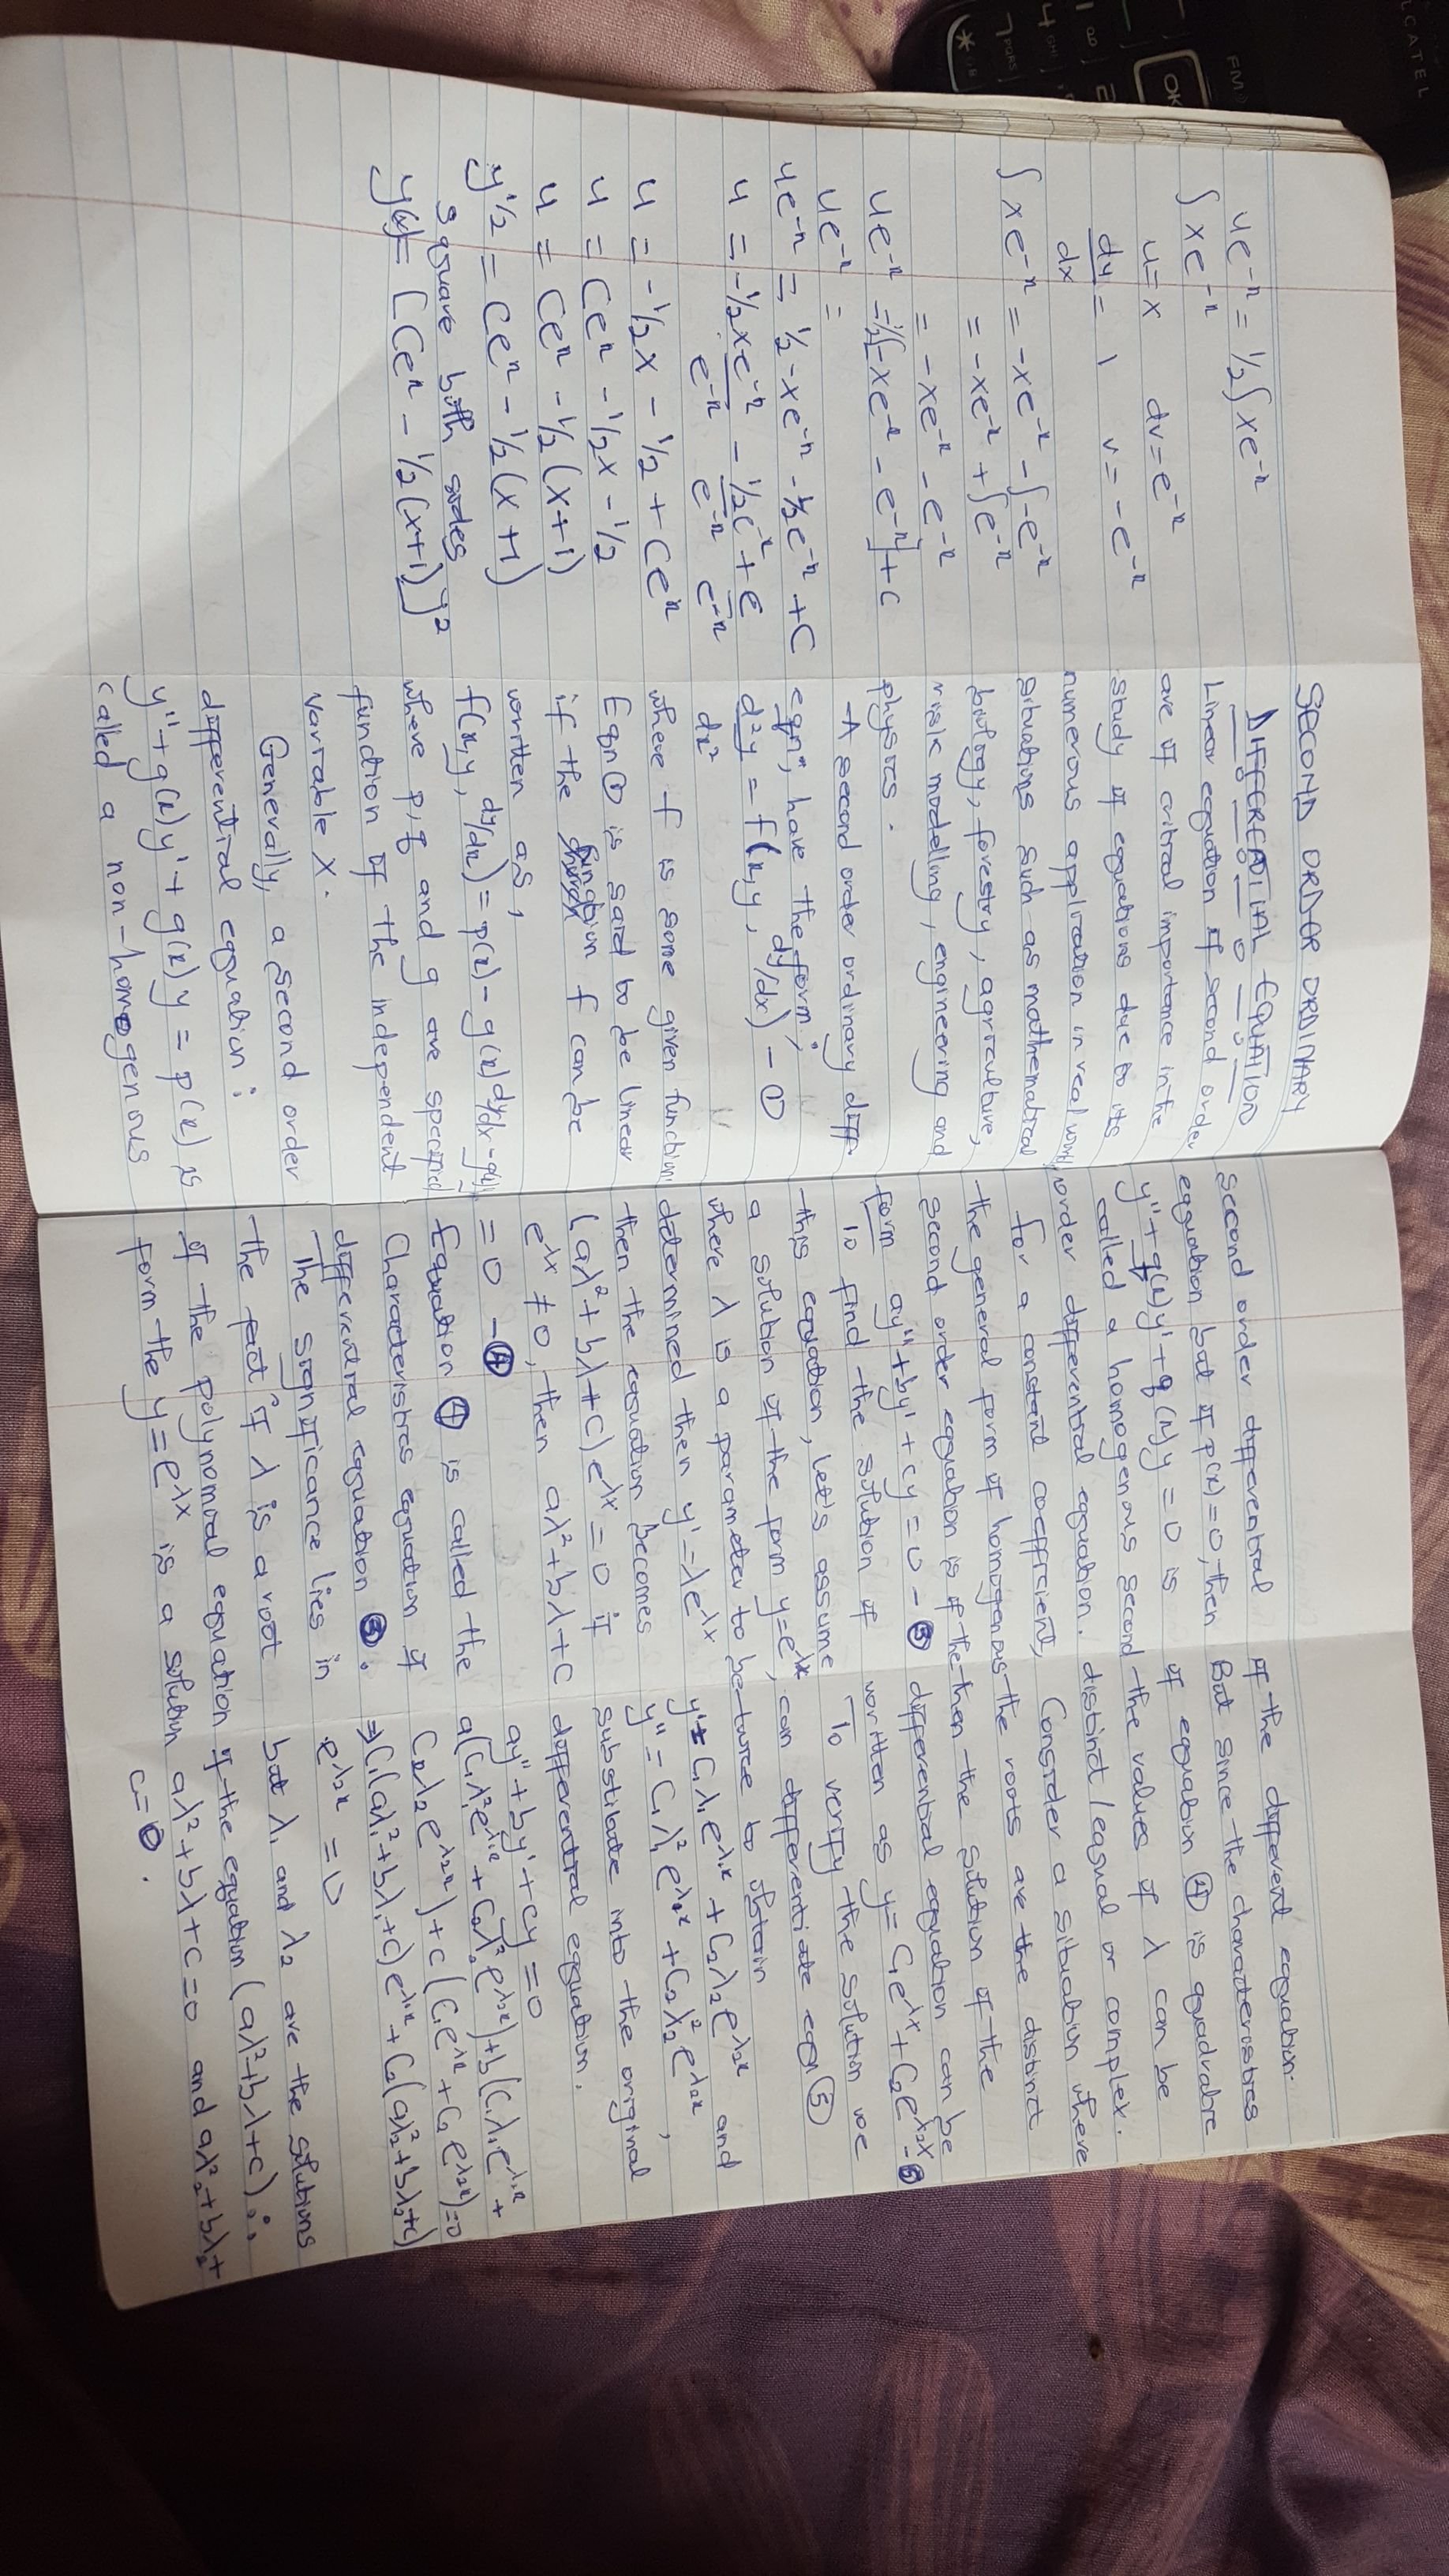 ue⁻ˣ = ½∫xe⁻ˣ
∫xe⁻ˣ
u = x dv = e⁻ˣ
du/dx = 1 v = -e⁻ˣ
∫xe⁻ˣ = -xe⁻ˣ - ∫-e⁻ˣ
= -xe⁻ˣ + ∫e⁻ˣ
= -xe⁻ˣ - e⁻ˣ
ue⁻ˣ = ½[-xe⁻ˣ - e⁻ˣ] + c
ue⁻ˣ =
ue⁻ˣ = ½ - xe⁻ˣ - ½e⁻ˣ + C
u = -½xe⁻ˣ/e⁻ˣ - ½e⁻ˣ/e⁻ˣ + c/e⁻ˣ
u = -½x - ½ + Ceˣ
u = Ceˣ - ½x - ½
u = Ceˣ - ½(x+1)
y^½ = Ceˣ - ½(x+1)
square both sides
y(x) = [Ceˣ - ½(x+1)]²
SECOND ORDER ORDINARY
DIFFERENTIAL EQUATION
Linear equation of second order
are of critical importance in the
study of equations due to its
numerous application in real world
situations such as mathematical
biology, forestry, agriculture,
risk modelling, engineering and
physics.
-A second order ordinary diff
eqn", have the form;
d²y/dx² = f(x,y, dy/dx) - ①
where f is some given function
Eqn ① is said to be linear
if the function f can be
written as,
f(x,y, dy/dx) = p(x) - g(x)dy/dx - q(x)y
where p,q and g are specified
function of the independent
variable x.
Generally, a second order
differential equation:
y'' + g(x)y' + q(x)y = p(x) is
called a non-homogenous
second order differential
equation but if p(x)=0, then
y'' + g(x)y' + q(x)y = 0 is
called a homogenous second
order differential equation.
For a constant coefficient,
the general form of homogenous
second order equation is of the
form ay'' + by' + cy = 0 - ③
To find the solution of
this equation, let's assume
a solution of the form y=e^λx,
where λ is a parameter to be
determined then y' = λe^λx
then the equation becomes
(aλ² + bλ + c)e^λx = 0 if
e^λx ≠ 0, then aλ² + bλ + c
= 0 - ④
Equation ④ is called the
Characteristics equation of
differential equation ③.
The significance lies in
the fact if λ is a root
of the polynomial equation of
form the y=e^λx is a solution
of the different equation.
But since the characteristics
of equation ④ is quadratic
the values of λ can be
distinct/equal or complex.
Consider a situation where
the roots are the distinct
then the solution of the
differential equation can be
written as y= C₁e^λx + C₂e^λ₂x - ⑤
To verify the solution we
can differentiate eqn ⑤
twice to obtain
y' = C₁λ₁e^λ₁x + C₂λ₂e^λ₂x and
y'' = C₁λ₁²e^λ₁x + C₂λ₂²e^λ₂x,
substitute into the original
differential equation.
ay'' + by' + cy = 0
a(C₁λ₁²e^λ₁x + C₂λ₂²e^λ₂x) + b(C₁λ₁e^λ₁x +
C₂λ₂e^λ₂x) + c(C₁e^λ₁x + C₂e^λ₂x) = 0
⇒ C₁(aλ₁² + bλ₁ + c)e^λ₁x + C₂(aλ₂² + bλ₂ + c)
e^λ₂x = 0
but λ₁ and λ₂ are the solutions
of the equation (aλ² + bλ + c) ∴
aλ² + bλ + c = 0 and aλ₂² + bλ₂ +
c = 0.
OK
FM
LCATEL